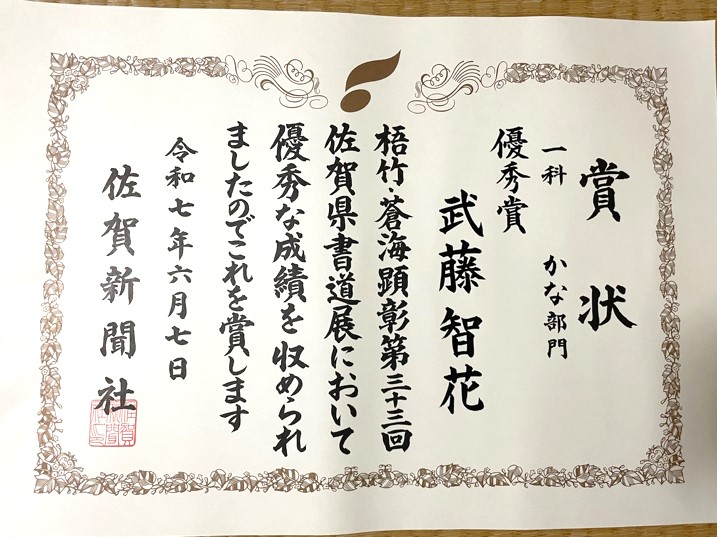 賞状
一科 かな部門
優秀賞
武藤智花
梧竹・蒼海顕彰第三十三回
佐賀県書道展において
優秀な成績を収められ
ましたのでこれを賞します
令和七年六月七日
佐賀新聞社